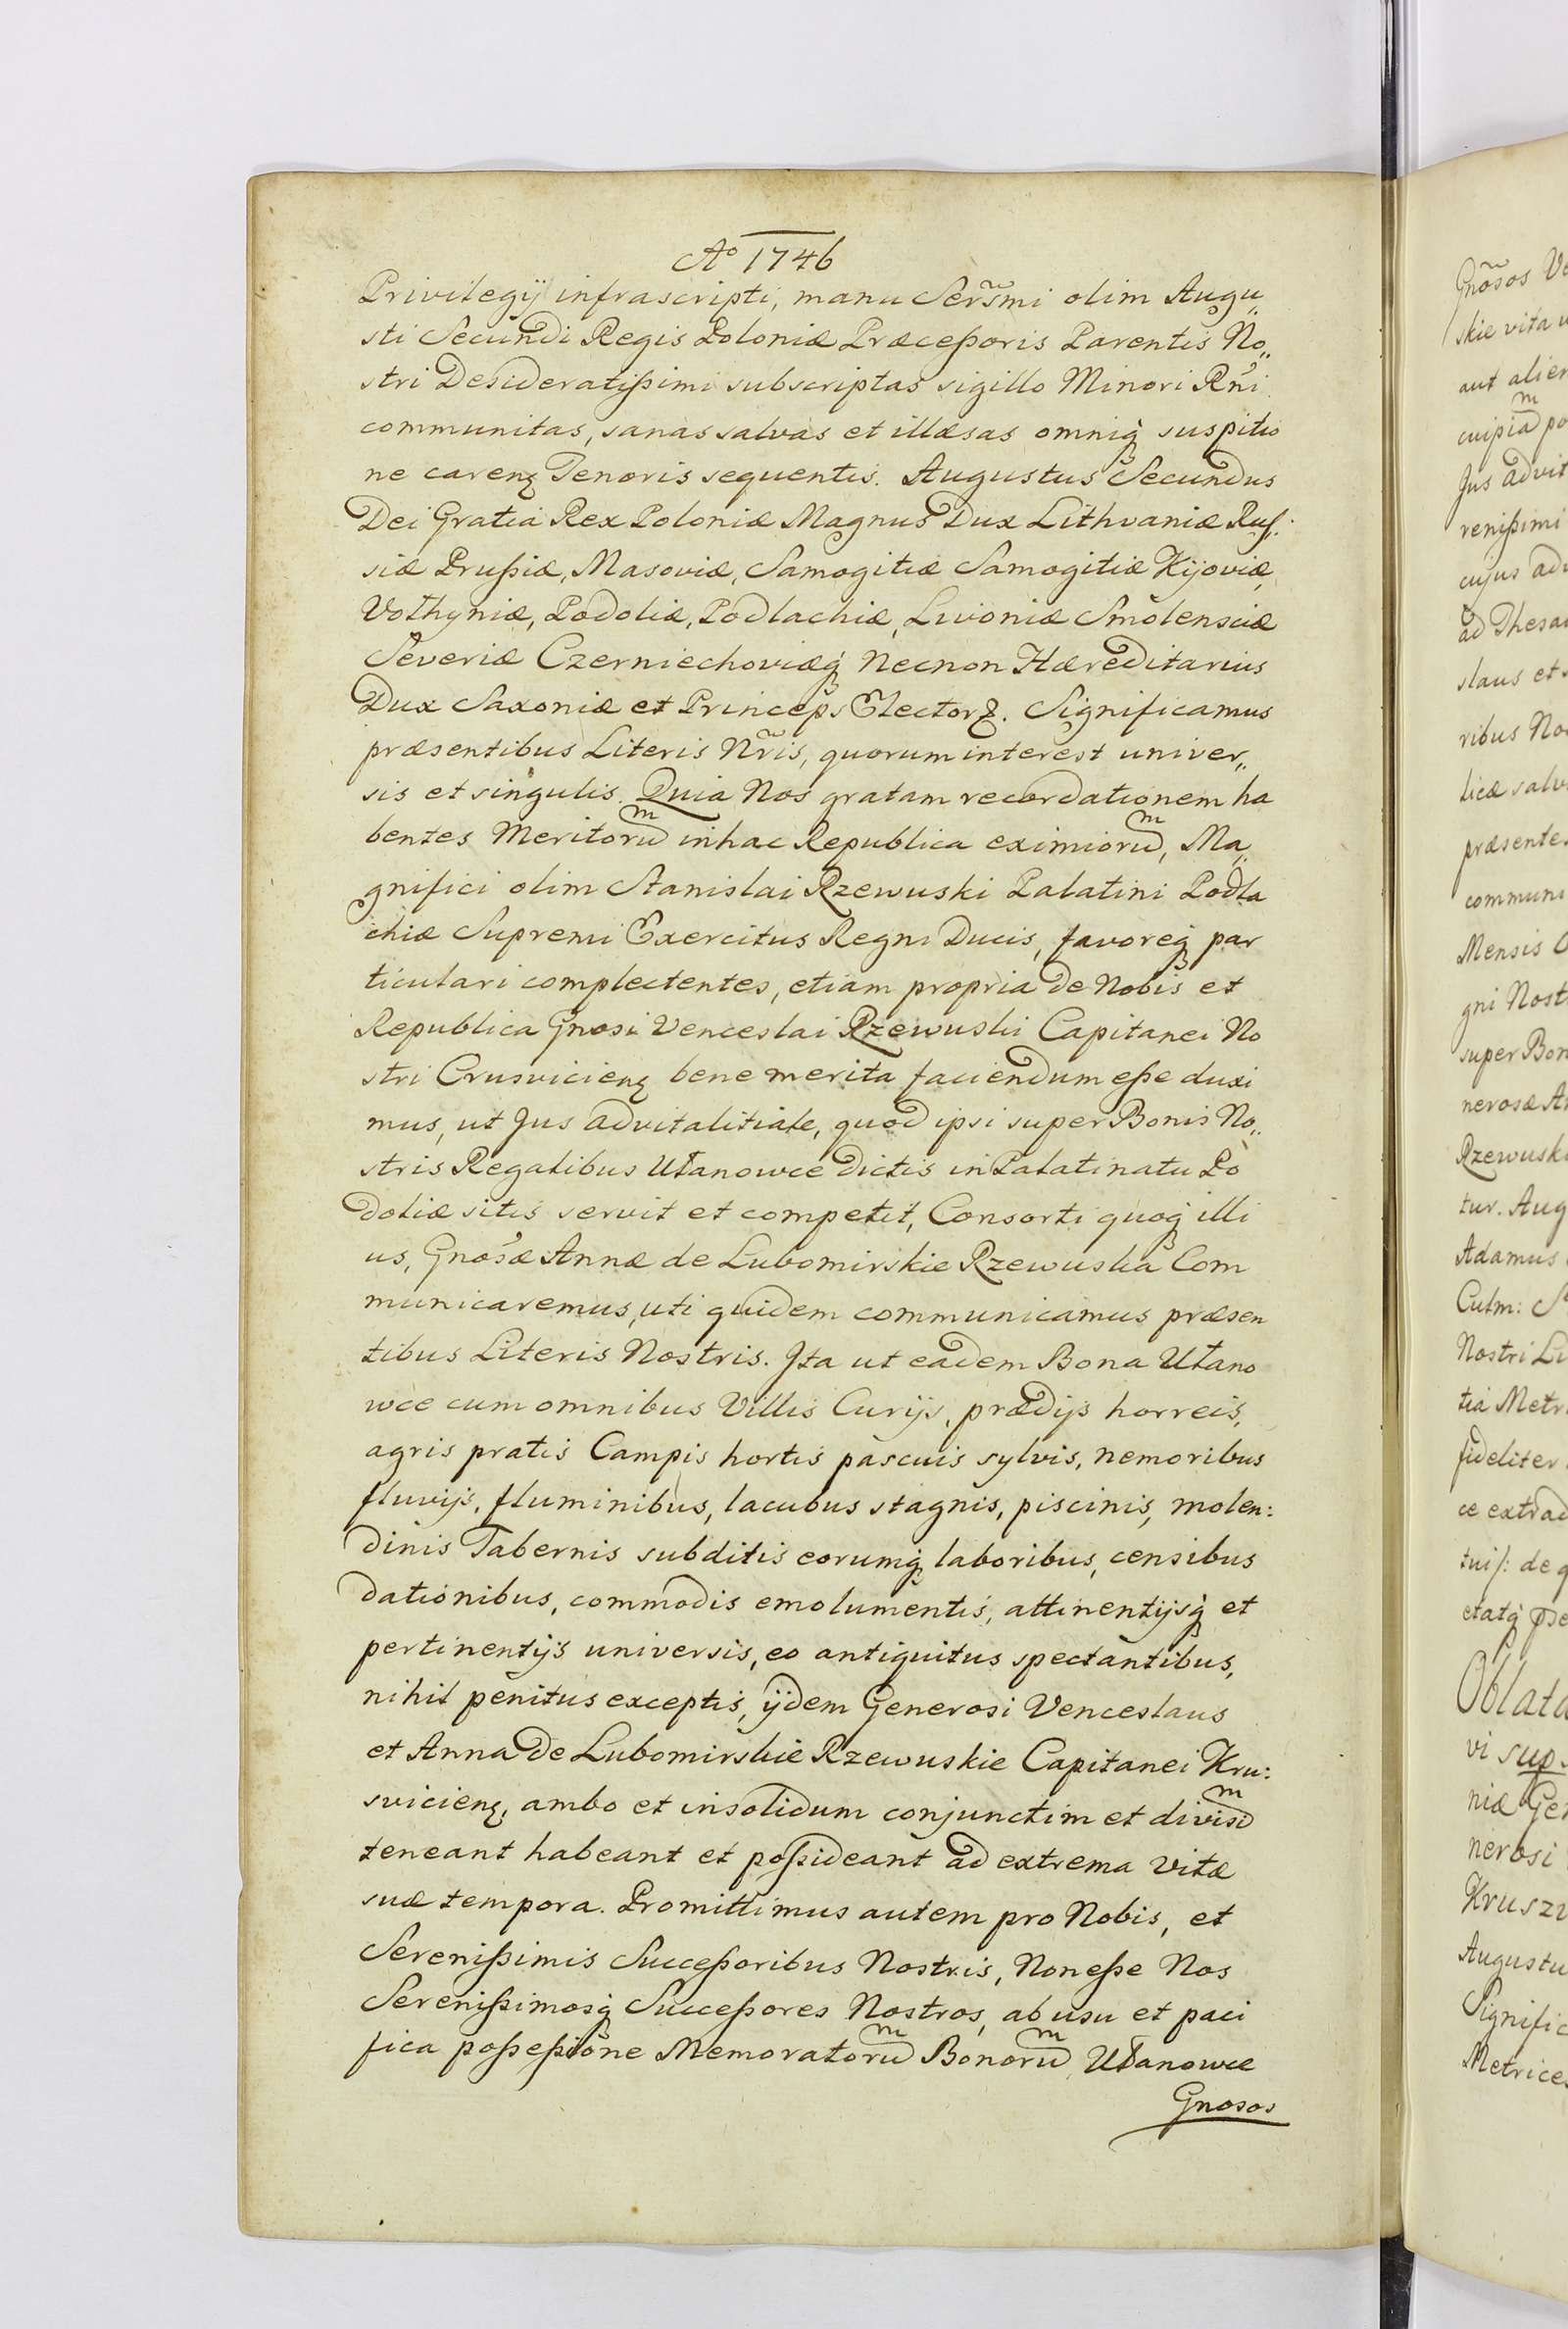 Aº 1746
Privilegÿ infrascripti, manu Sers̃mi olim Augu„
sti Secundi Regis Poloniæ Præceßoris Parentis No„
stri Desideratißimi subscriptas sigillo Minori Rñi
communitas, sanas salvas et illæsas omniq̃ suspitio
ne carenȝ Tenoris sequentis. Augustus Secundus
Dei Gratia Rex Poloniæ Magnus Dux Lithvaniæ Ruſ:
siæ Prußiæ, Masoviæ, Samogitiæ Samogitiæ Kijoviæ,
Volhyniæ, Podoliæ, Podlachiæ, Livoniæ Smolensciæ
Severiæ Czerniechoviæq̃ Necnon Hæreditarius
Dux Saxoniæ et Princeps Electorȝ. Significamus
præsentibus Literis Nr̃is, quorum interest univer„
sis et singulis. Quia Nos gratam recordationem ha
bentes Meritorum̃ in hac Republica eximiorum̃, Ma„
gnifici olim Stanislai Rzewuski Palatini Podla
chiæ Supremi Exercitus Regni Ducis, favoreq̃ par
ticulari complectentes, etiam propria de Nobis et
Republica Gnosi Venceslai Rzewuski Capitanei No
stri Crusvicienȝ bene merita faciendum eße duxi
mus, ut Jus advitalitiale, quod ipsi super Bonis No„
stris Regalibus Ułanowce dictis in Palatinatu Po
doliæ sitis servit et competit, Consorti quoq̃ illi
us, Gnosæ Annæ de Lubomirskie Rzewuska Com
municaremus, uti quidem communicamus præsen
tibus Literis Nostris. Ita ut eadem Bona Ułano
wce cum omnibus Villis Curijs, prædijs horreis,
agris pratis Campis hortis pascuis sylvis, nemoribus
fluvijs, fluminibus, lacubus stagnis, piscinis, molen:
dinis Tabernis subditis eorumq̃ laboribus, censibus
dationibus, commodis emolumentis, attinentijsq̃ et
pertinentijs universis, eo antiquitus spectantibus,
nihil penitus exceptis, ijdem Generosi Venceslaus
et Anna de Lubomirskie Rzewuskie Capitanei Kru:
svicienȝ, ambo et insolidum conjunctim et divisim̃
teneant habeant et poßideant ad extrema vitæ
suæ tempora. Promittimus autem pro Nobis, et
Serenißimis Succeßoribus Nostris, Non eße Nos
Serenißimosq̃ Succeßores Nostros, ab usu et paci
fica poßeßione Memoratorum̃ Bonorum̃ Ułanowce
Gnosos
Gnõsos
skie vita
aut alien
Jus advit
renißimi
cujus adv
ad Thesau
slaus et
ribus No
licæ salv
præsentes
communi
Mensis
gni Nost
super Bon
nerosæ An
Rzewuski
tur. Aug
Adamus
Culm:
Nostri
tia Metr
fideliter
ce extrad
Oblata
vi sup
niæ Gen
nerosi
Krusz
Augustu
Signific
Metrices